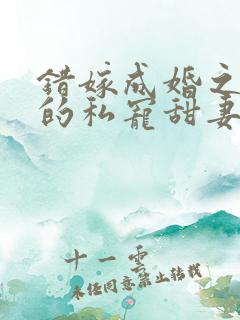 错嫁成婚之
的私宠甜妻
十一云
未经同意禁止转载